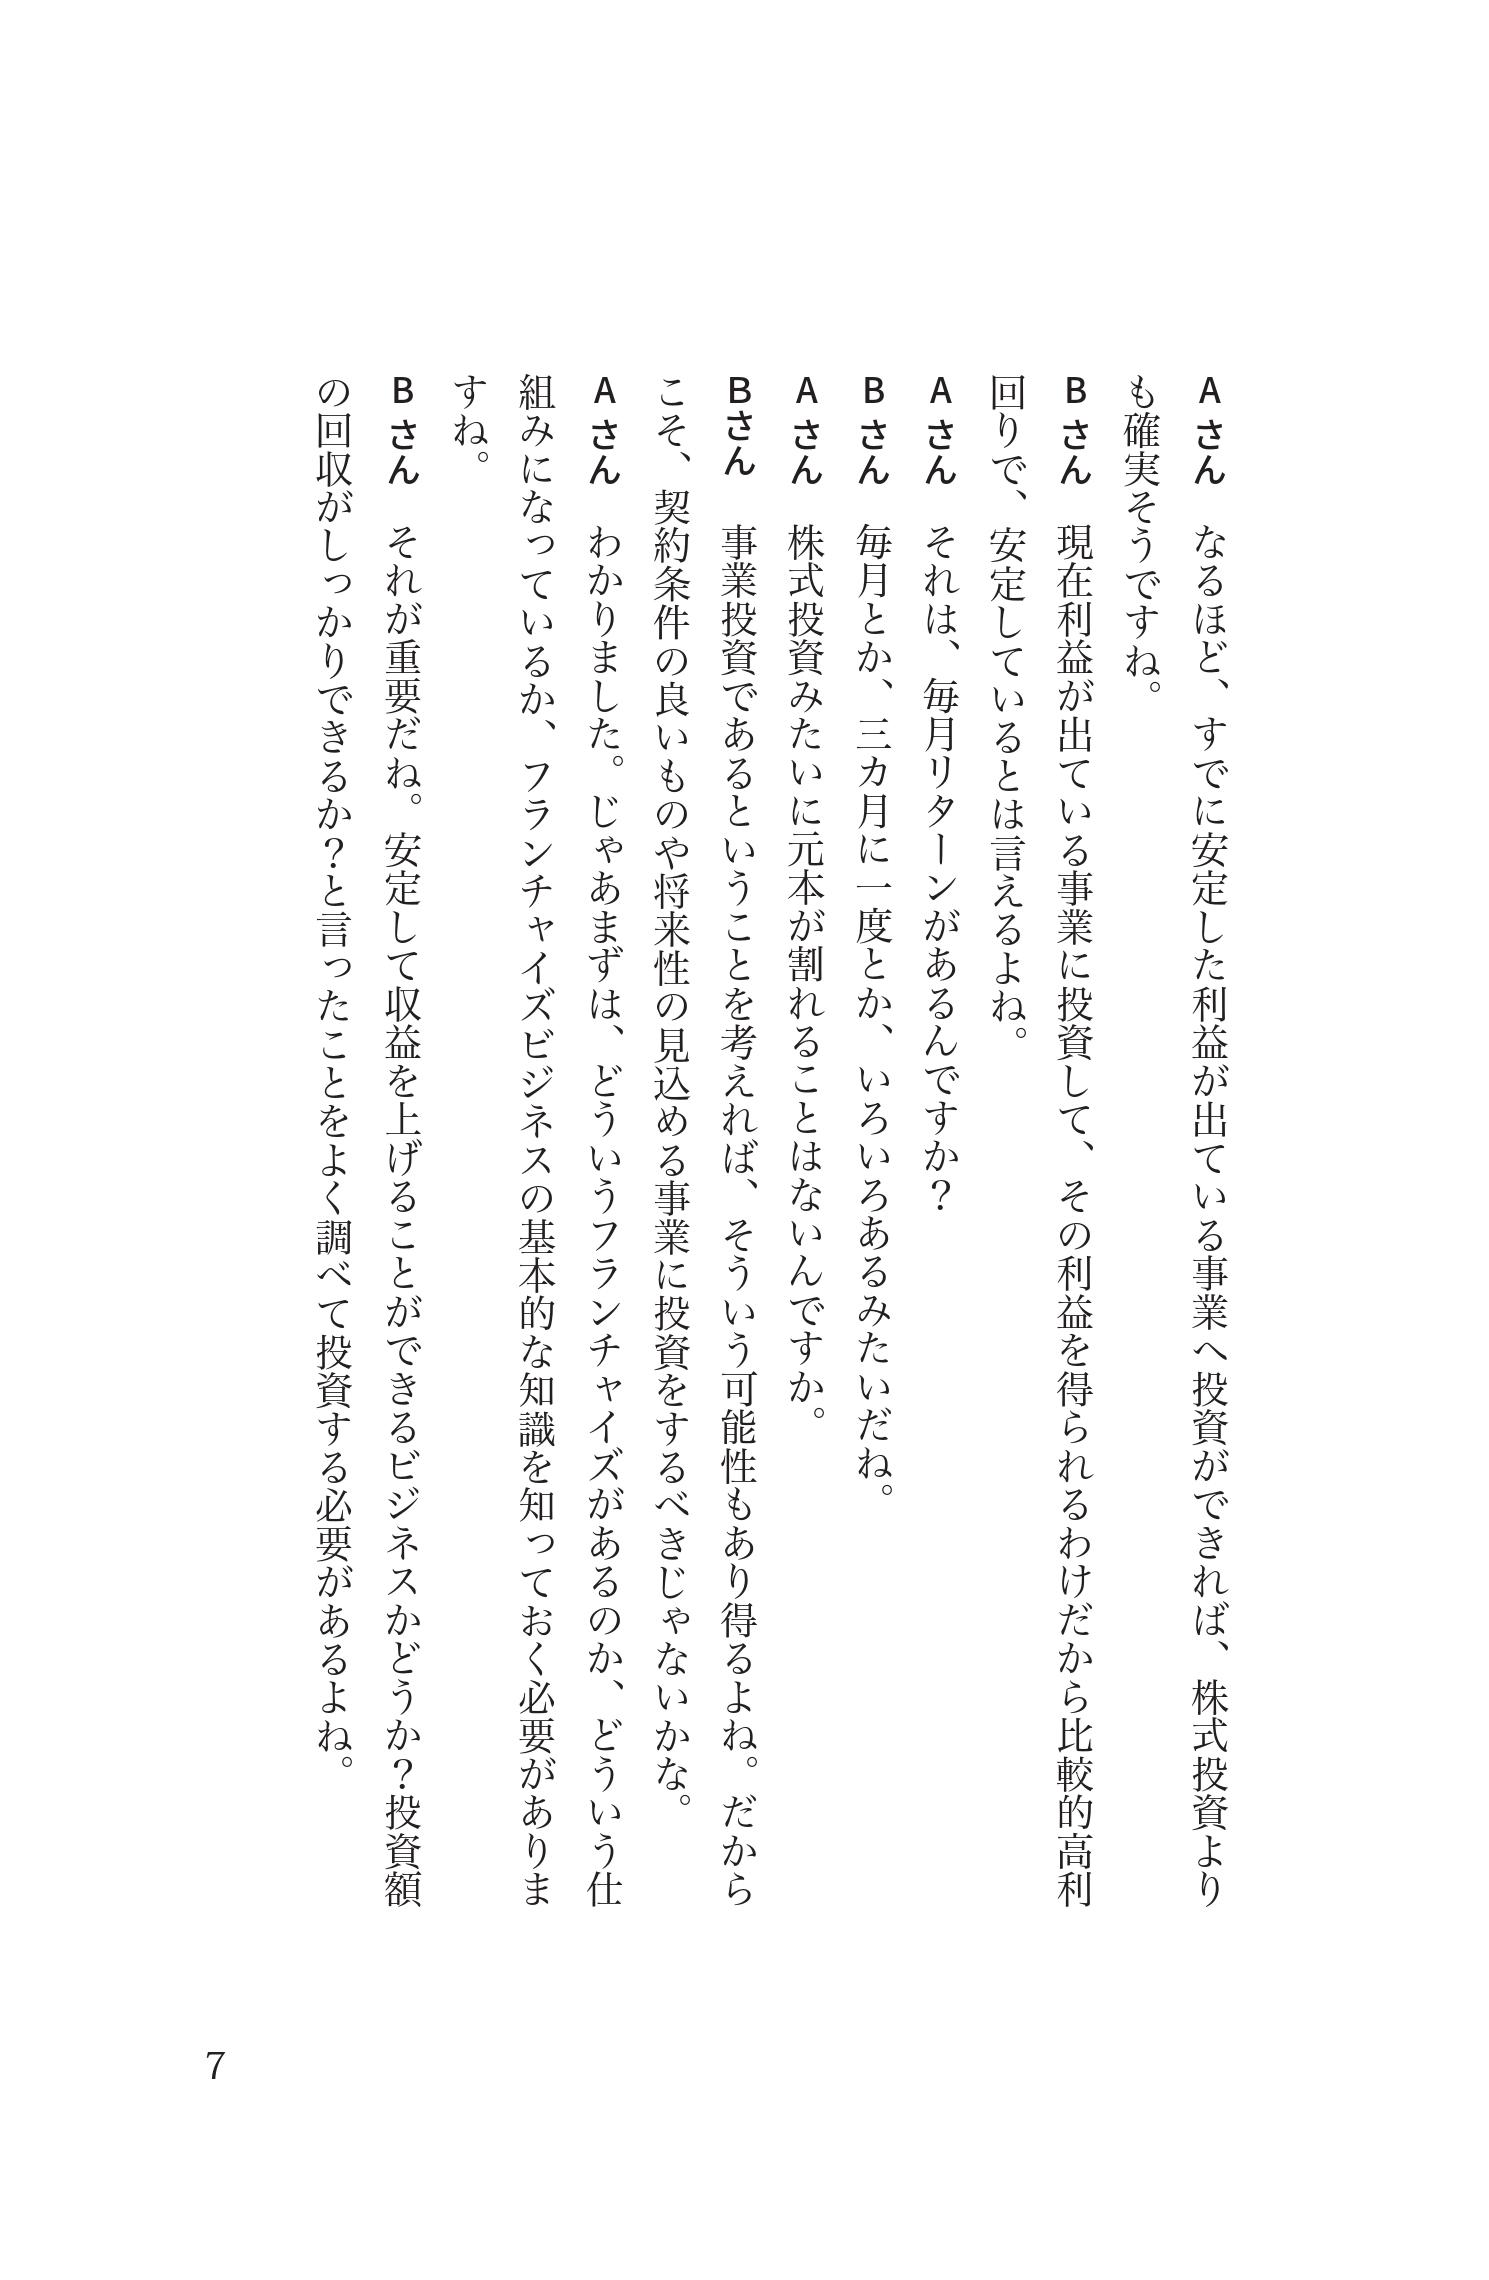 Aさん　なるほど、すでに安定した利益が出ている事業へ投資ができれば、株式投資より
も確実そうですね。
Bさん　現在利益が出ている事業に投資して、その利益を得られるわけだから比較的高利
回りで、安定しているとは言えるよね。
Aさん　それは、毎月リターンがあるんですか？
Bさん　毎月とか、三カ月に一度とか、いろいろあるみたいだね。
Aさん　株式投資みたいに元本が割れることはないんですか。
Bさん　事業投資であるということを考えれば、そういう可能性もあり得るよね。だから
こそ、契約条件の良いものや将来性の見込める事業に投資をするべきじゃないかな。
Aさん　わかりました。じゃあまずは、どういうフランチャイズがあるのか、どういう仕
組みになっているか、フランチャイズビジネスの基本的な知識を知っておく必要がありま
すね。
Bさん　それが重要だね。安定して収益を上げることができるビジネスかどうか？投資額
の回収がしっかりできるか？と言ったことをよく調べて投資する必要があるよね。
7